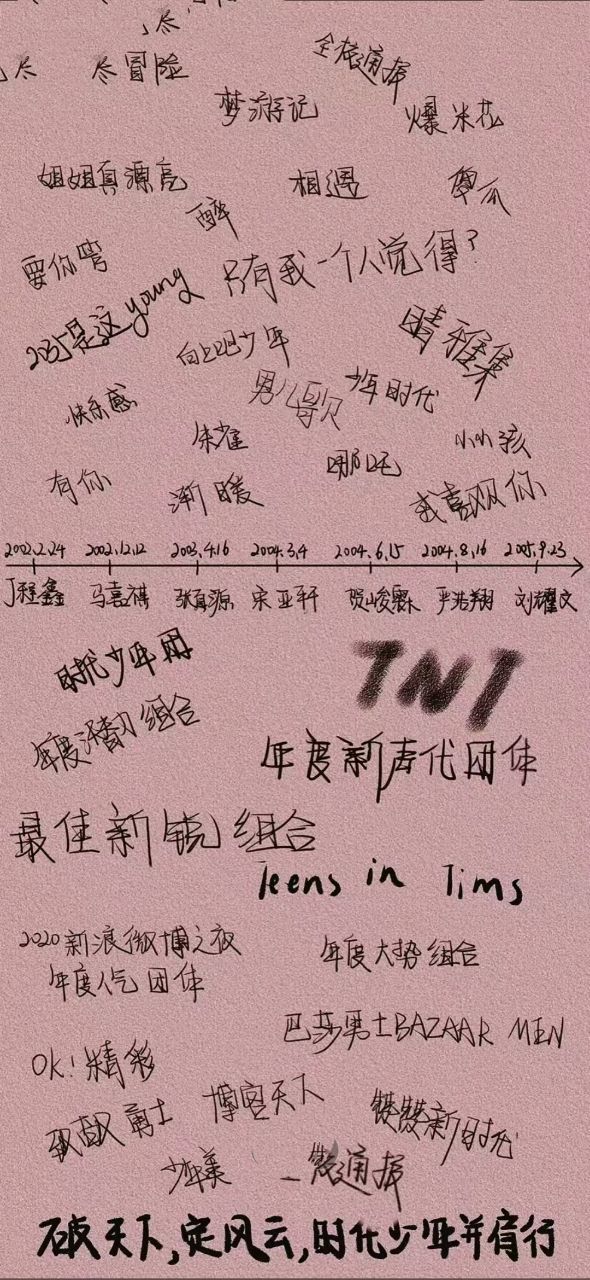 尽冒险
全很通挥
梦游记
爆米花
姐姐真漂亮
相遇
傻瓜
醉
要你管
只有我一个人觉得?
就是这young
向上吧少年
晴雅集
快乐感
男儿歌
少年时代
朱雀
哪吒
小小孩
有你
渐暖
我喜欢你
2002.2.24 2002.12.12 2003.4.16 2004.3.4 2004.6.15 2004.8.16 2005.9.23
丁程鑫 马嘉祺 张真源 宋亚轩 贺峻霖 严浩翔 刘耀文
时代少年团
TNT
年度潜力组合
年度新声代团体
最佳新锐组合
Teens in Tims
2020新浪微博之夜
年度人气团体
年度大势组合
巴莎男士BAZAAR MEN
OK!精彩
博客天下
勇士
新时代
少年美
破天下,定风云,时代少年并肩行